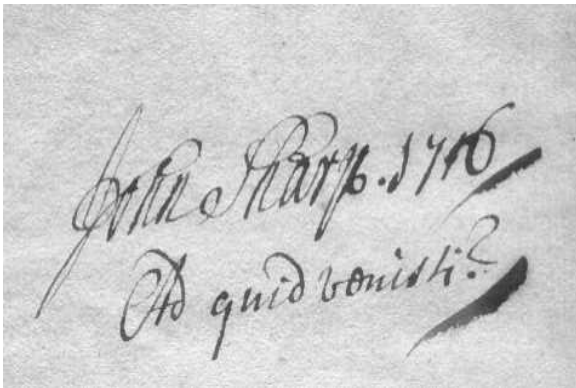 John Sharp. 1716
Ad quid venisti?